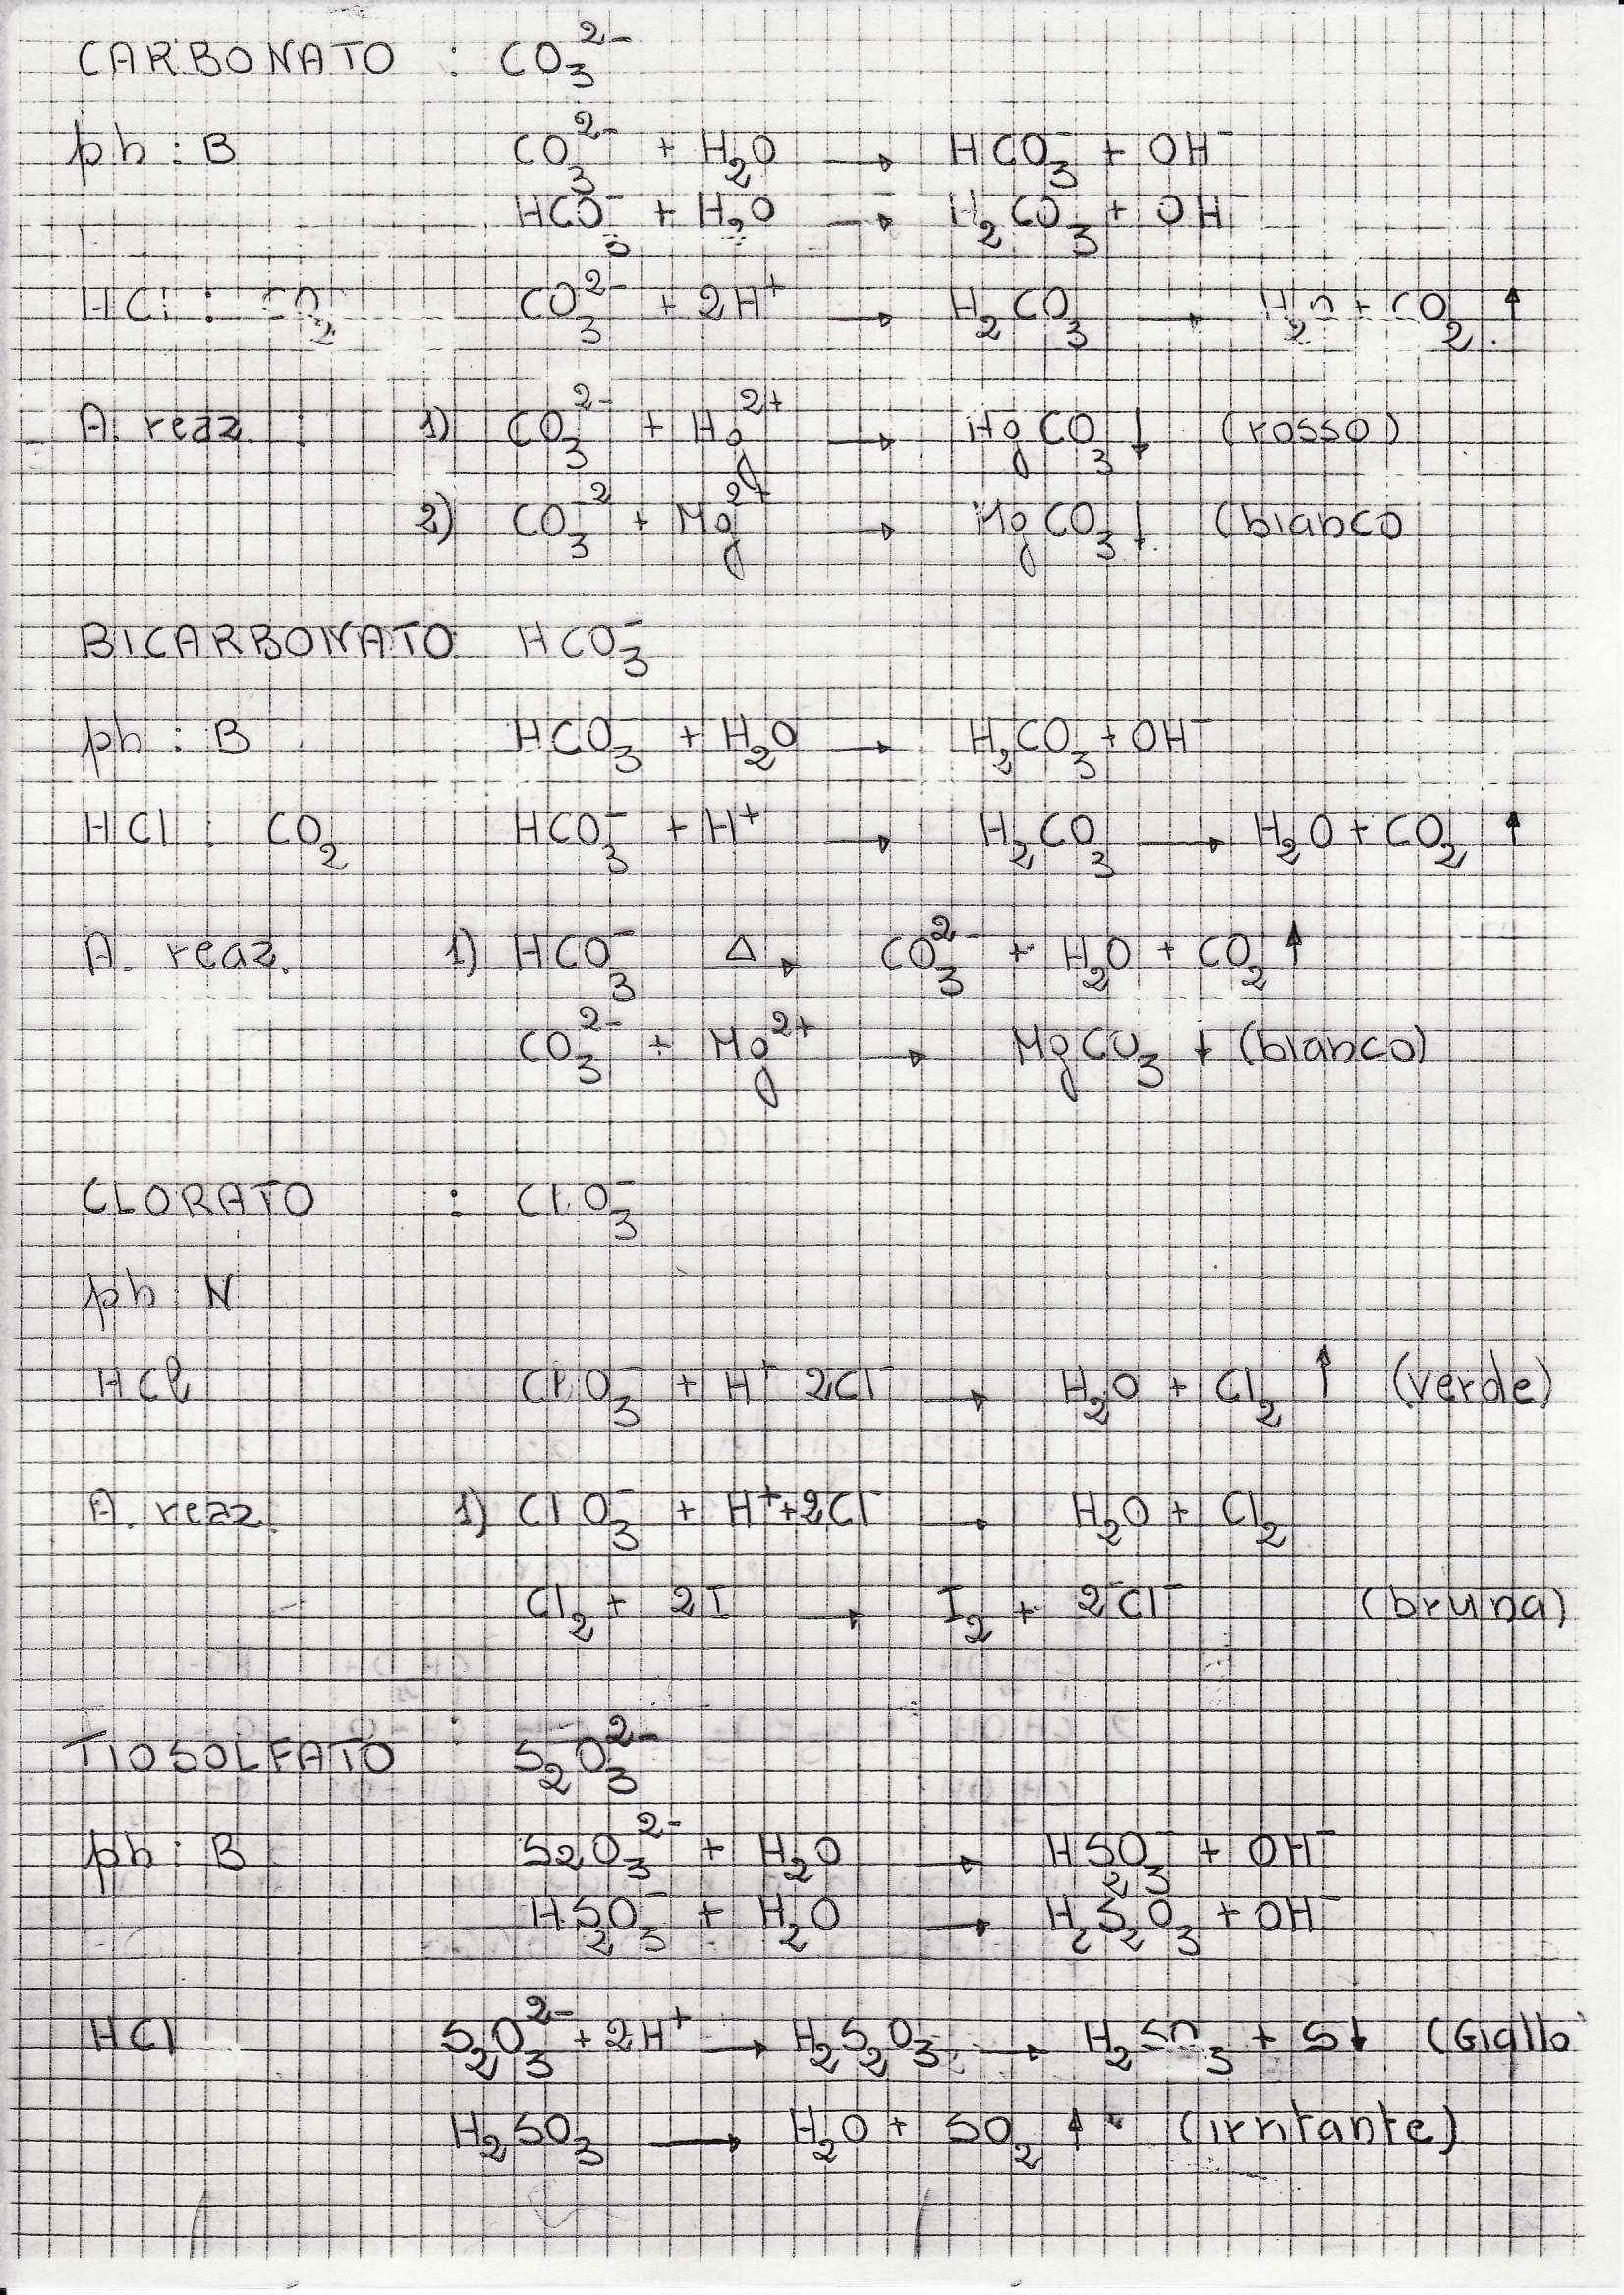 CARBONATO : CO₃²⁻
ph : B CO₃²⁻ + H₂O → HCO₃⁻ + OH⁻
HCO₃⁻ + H₂O → H₂CO₃ + OH
HCl : CO₂ CO₃²⁻ + 2H⁺ → H₂CO₃ → H₂O + CO₂ ↑
A. reaz : 1) CO₃²⁻ + Hg²⁺ → HgCO₃ ↓ (rosso)
2) CO₃⁻² + Mg²⁺ → MgCO₃ ↓ (bianco
BICARBONATO HCO₃⁻
ph : B HCO₃⁻ + H₂O → H₂CO₃ + OH⁻
HCl : CO₂ HCO₃⁻ + H⁺ → H₂CO₃ → H₂O + CO₂ ↑
A. reaz. 1) HCO₃⁻ Δ→ CO₃²⁻ + H₂O + CO₂ ↑
CO₃²⁻ + Mg²⁺ → MgCO₃ ↓ (bianco)
CLORATO : ClO₃⁻
ph : N
HCl ClO₃⁻ + H⁺ 2Cl⁻ → H₂O + Cl₂ ↑ (verde)
A. reaz. 1) ClO₃⁻ + H⁺ + 2Cl⁻ → H₂O + Cl₂
Cl₂ + 2I⁻ → I₂ + 2Cl⁻ (bruna)
TIOSOLFATO : S₂O₃²⁻
ph : B S2O₃²⁻ + H₂O → HS₂O₃⁻ + OH⁻
HS₂O₃⁻ + H₂O → H₂S₂O₃ + OH⁻
HCl S₂O₃²⁻ + 2H⁺ → H₂S₂O₃ → H₂SO₃ + S↓ (Giallo
H₂SO₃ → H₂O + SO₂ ↑ (irritante)